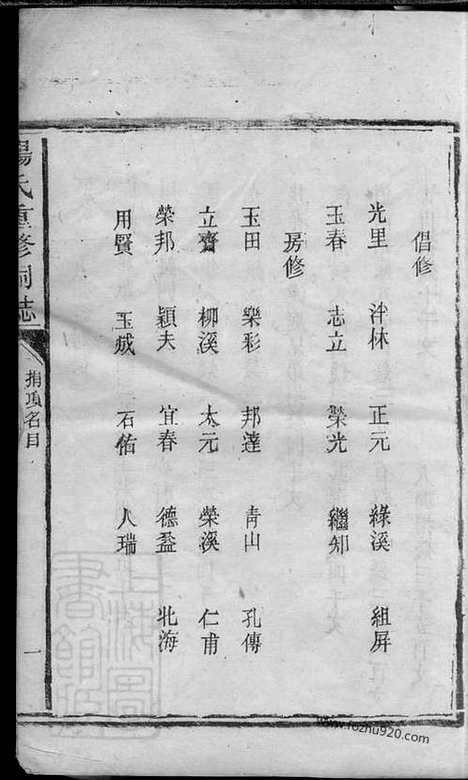 倡修
光里 泮林 正元 綠溪 組屏
玉春 志立 榮光 繼知
房修
玉田 樂彩 邦達 青山 孔傳
立齋 柳溪 太元 榮溪 仁甫
榮邦 穎夫 宜春 德盈 北海
用賢 玉成 石佑 人瑞
楊氏重修祠志
捐項名目
一
上海圖書館藏
www.fozhu920.com